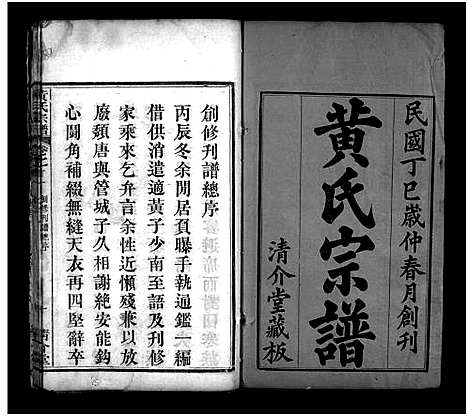 民國丁巳歲仲春月創刊
黃氏宗譜
清介堂藏板
創修刊譜總序
丙辰冬余閒居負曝手執通鑑一編
借供消遣適黃子少南至語及刊修
家乘來乞弁言余性近懶殘兼以放
廢頹唐與管城子久相謝絶安能鈎
心鬬角補綴無縫天衣再四堅辭卒
黃氏宗譜
創修刊譜總序
清介堂